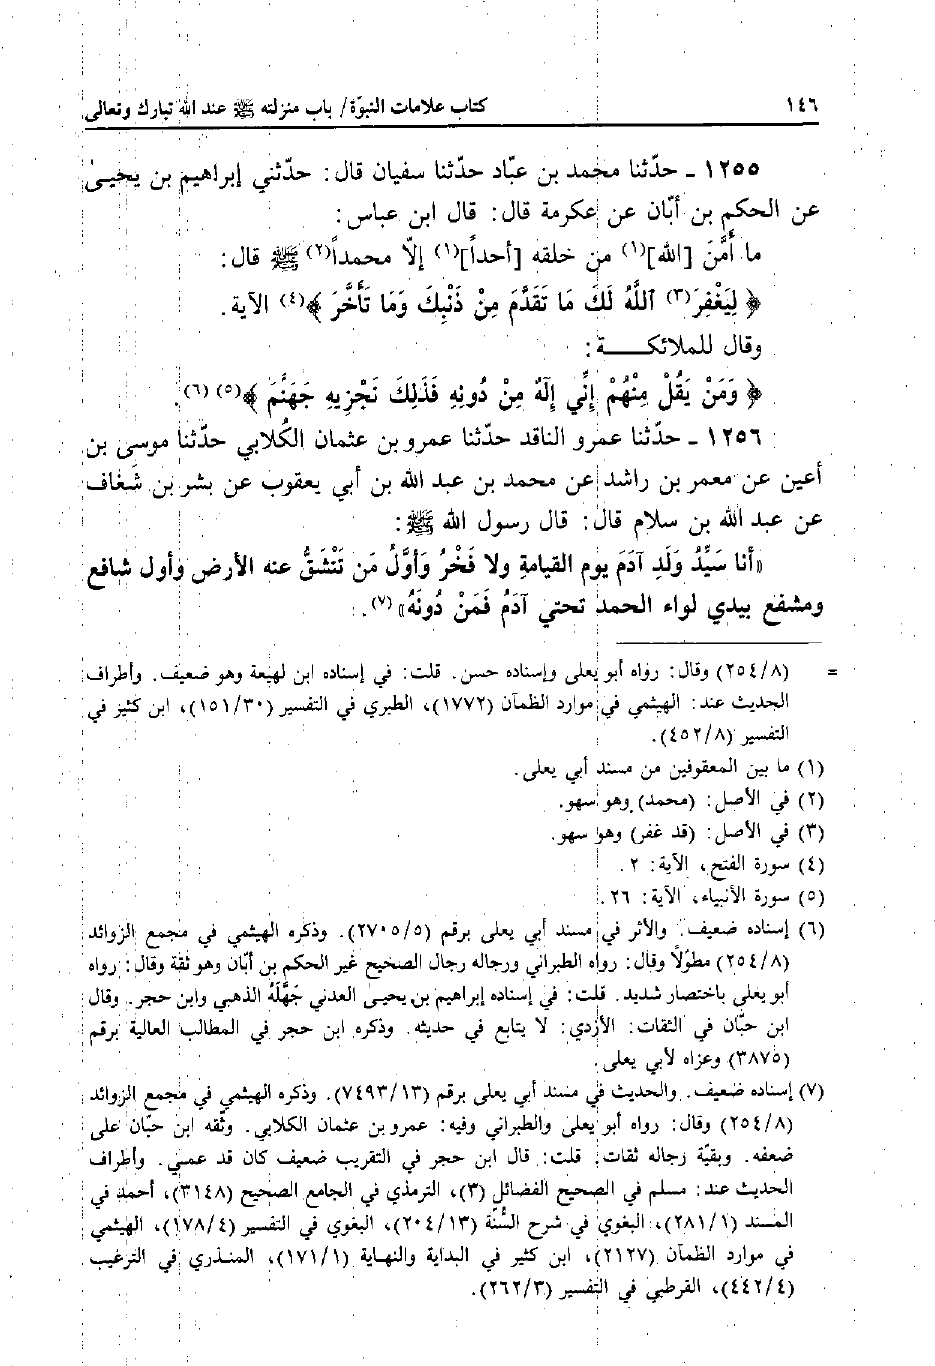 ١٤٦ كتاب علامات النبوّة/ باب منزلته ﷺ عند الله تبارك وتعالى
١٢٥٥ ـ حدّثنا محمد بن عبّاد حدّثنا سفيان قال: حدّثني إبراهيم بن يحيىٰ
عن الحكم بن أبَان عن عكرمة قال: قال ابن عباس:
ما أَمَّنَ [الله](١) من خلقه [أحداً](١) إلاّ محمداً(٢) ﷺ قال:
﴿ لِيَغْفِرَ(٣) ٱللَّهُ لَكَ مَا تَقَدَّمَ مِنْ ذَنْبِكَ وَمَا تَأَخَّرَ ﴾(٤) الآية.
وقال للملائكــــة:
﴿ وَمَنْ يَقُلْ مِنْهُمْ إِنِّي إِلَهٌ مِنْ دُونِهِ فَذَلِكَ نَجْزِيهِ جَهَنَّمَ ﴾(٥) (٦).
١٢٥٦ ـ حدّثنا عمرو الناقد حدّثنا عمرو بن عثمان الكُلابي حدّثنا موسى بن
أعين عن معمر بن راشد عن محمد بن عبد الله بن أبي يعقوب عن بشر بن شَغاف
عن عبد الله بن سلام قال: قال رسول الله ﷺ:
«أنا سَيِّدُ وَلَدِ آدَمَ يوم القيامةِ ولا فَخْرُ وَأَوَّلُ مَن تَنْشَقُّ عنه الأرض وأول شافع
ومشفع بيدي لواء الحمد تحتي آدَمُ فَمَنْ دُونَهُ»(٧).
= (٢٥٤/٨) وقال: رواه أبو يعلى وإسناده حسن. قلت: في إسناده ابن لهيعة وهو ضعيف. وأطراف
الحديث عند: الهيثمي في موارد الظمآن (١٧٧٢)، الطبري في التفسير (١٥١/٣٠)، ابن كثير في
التفسير (٤٥٢/٨).
(١) ما بين المعقوفين من مسند أبي يعلى.
(٢) في الأصل: (محمد) وهو سهو.
(٣) في الأصل: (قد غفر) وهو سهو.
(٤) سورة الفتح، الآية: ٢.
(٥) سورة الأنبياء، الآية: ٢٦.
(٦) إسناده ضعيف. والأثر في مسند أبي يعلى برقم (٢٧٠٥/٥). وذكره الهيثمي في مجمع الزوائد
(٢٥٤/٨) مطوّلاً وقال: رواه الطبراني ورجاله رجال الصحيح غير الحكم بن أبّان وهو ثقة وقال: رواه
أبو يعلى باختصار شديد. قلت: في إسناده إبراهيم بن يحيى العدني جَهَّلَهُ الذهبي وابن حجر. وقال
ابن حبّان في الثقات: الأزدي: لا يتابع في حديثه. وذكره ابن حجر في المطالب العالية برقم
(٣٨٧٥) وعزاه لأبي يعلى.
(٧) إسناده ضعيف. والحديث في مسند أبي يعلى برقم (٧٤٩٣/١٣). وذكره الهيثمي في مجمع الزوائد
(٢٥٤/٨) وقال: رواه أبو يعلى والطبراني وفيه: عمرو بن عثمان الكلابي. وثّقه ابن حبّان على
ضعفه. وبقيّة رجاله ثقات. قلت: قال ابن حجر في التقريب ضعيف كان قد عمي. وأطراف
الحديث عند: مسلم في الصحيح الفضائل (٣)، الترمذي في الجامع الصحيح (٣١٤٨)، أحمد في
المسند (٢٨١/١)، البغوي في شرح السُّنّة (٢٠٤/١٣)، البغوي في التفسير (١٧٨/٤)، الهيثمي
في موارد الظمآن (٢١٢٧)، ابن كثير في البداية والنهاية (١٧١/١)، المنذري في الترغيب
(٤٤٢/٤)، القرطبي في التفسير (٢٦٢/٣).